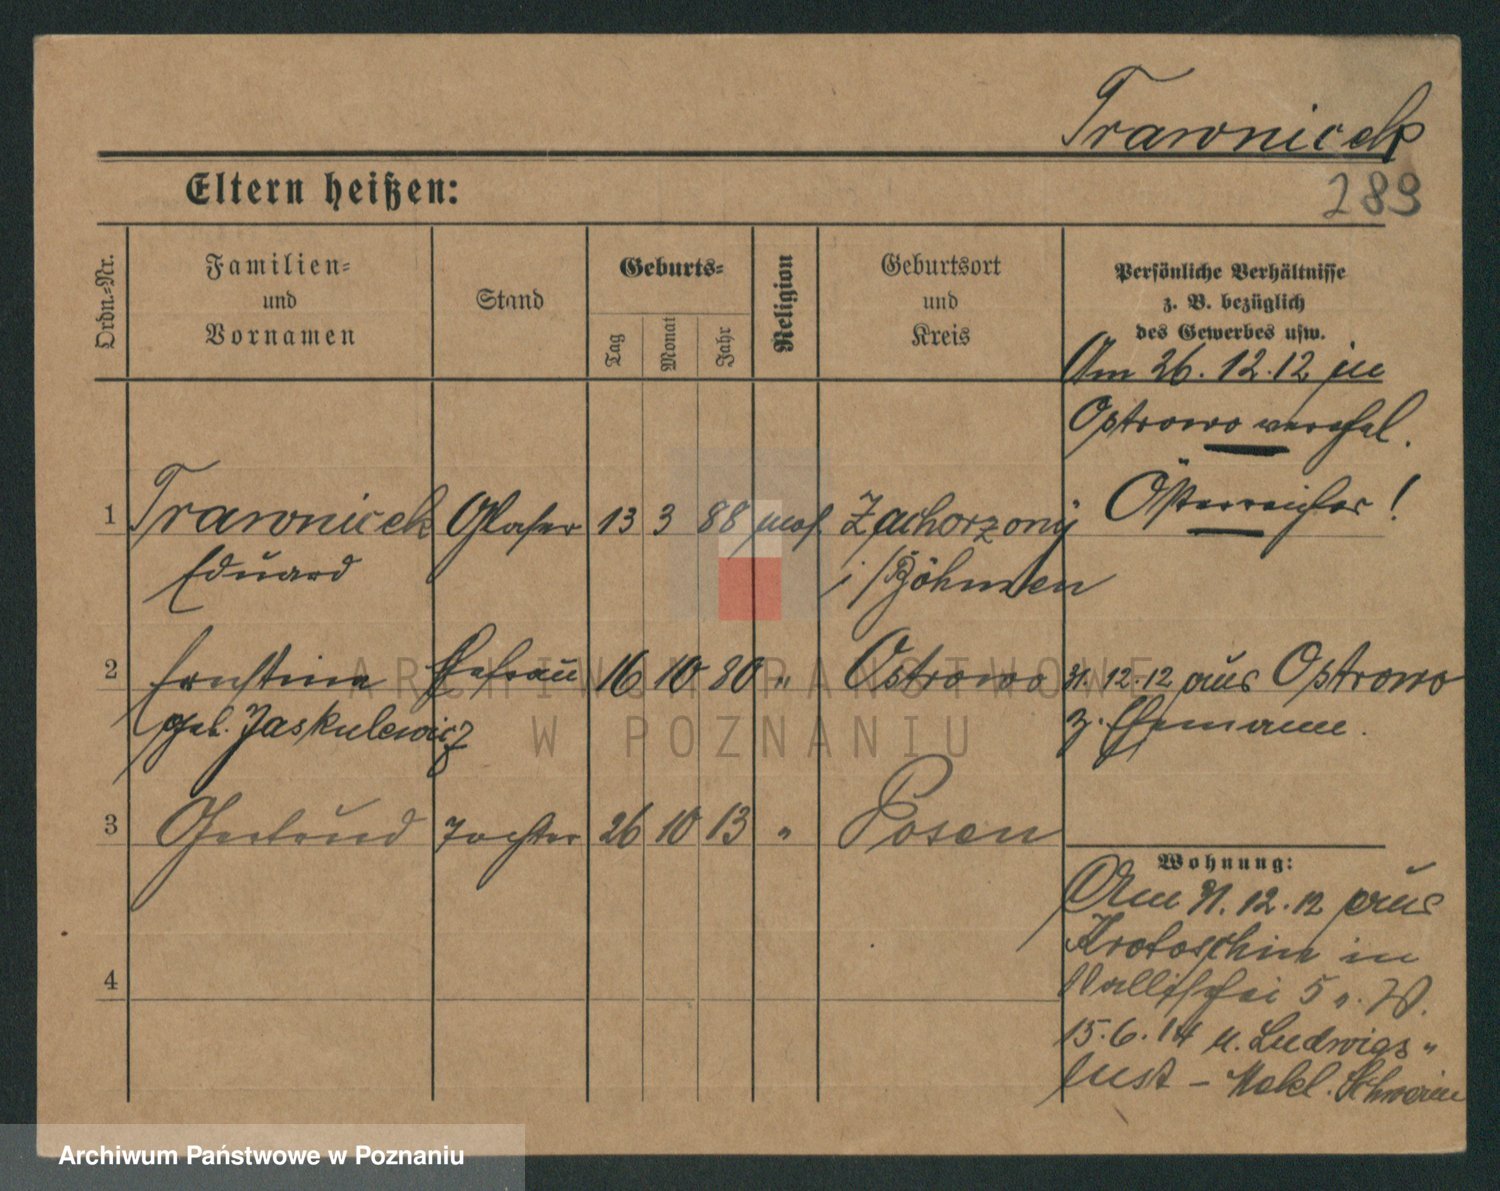 Trawnicek
289
Eltern heißen:
Ordn.-Nr.
Familien-
und
Vornamen
Stand
Geburts-
Tag
Monat
Jahr
Religion
Geburtsort
und
Kreis
Persönliche Verhältnisse
z. B. bezüglich
des Gewerbes usw.
Am 26.12.12 in
Ostrowo verehel.
Österreicher!
1 Trawnicek Glaser 13 3 88 mos. Zachorzony
Eduard i/Böhmen
2 Ernstine Ehefrau 16 10 80 " Ostrowo 31.12.12 aus Ostrowo
geb. Jaskulewicz z. Ehemann.
3 Gertrud Tochter 26 10 13 " Posen
4
Wohnung:
Am 31.12.12 aus
Krotoschin in
Wallischei 5
15.6.14 n. Ludwigs-
lust - Mekl. Schwerin
ARCHIWUM PAŃSTWOWE
W POZNANIU
Archiwum Państwowe w Poznaniu